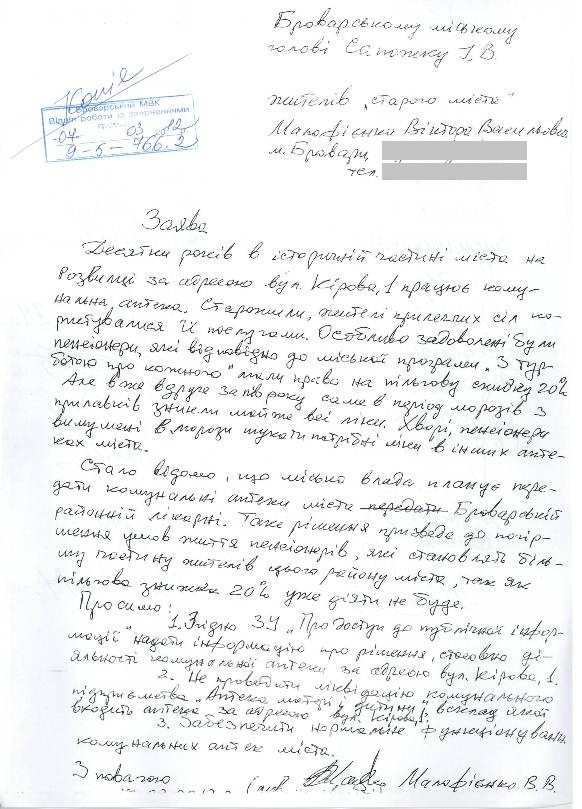 Броварському міському
голові Сапожку І.В
Копія
Броварський МВК
Відділ роботи із зверненнями
громадян
07 03 2012
9-5-766.3
жителів „старого міста"
Малафієнко Віктора Васильовича
м. Бровари,
тел.
Заява
Десятки років в історичній частині міста на
Розвилці за адресою вул. Кірова, 1 працює кому-
нальна, аптека. Старожили, жителі прилеглих сіл ко-
ристувалися її послугами. Особливо задоволені були
пенсіонери, які відповідно до міської програми „З тур-
ботою про кожного" мали право на пільгову знижку 20%
Але вже вдруге за півроку саме в період морозів з
прилавків зникли майже всі ліки. Хворі, пенсіонери
вимушені в морози шукати потрібні ліки в інших апте-
ках міста.
Стало відомо, що міська влада планує пере-
дати комунальні аптеки міста передати Броварській
районній лікарні. Таке рішення призведе до погір-
шення умов життя пенсіонерів, які становлять біль-
шу частину жителів цього району міста, так як
пільгова знижка 20% уже діяти не буде.
Просимо:
1. Згідно ЗУ „Про доступ до публічної інфор-
мації" надати інформацію про рішення, стосовно ді-
яльності комунальної аптеки за адресою вул. Кірова, 1.
2. Не проводити ліквідацію комунального
підприємства „Аптека матері і дитини", в склад якої
входить аптека за адресою вул. Кірова, 1.
3. Забезпечити нормальне функціонування
комунальних аптек міста.
З повагою Малафієнко В.В.